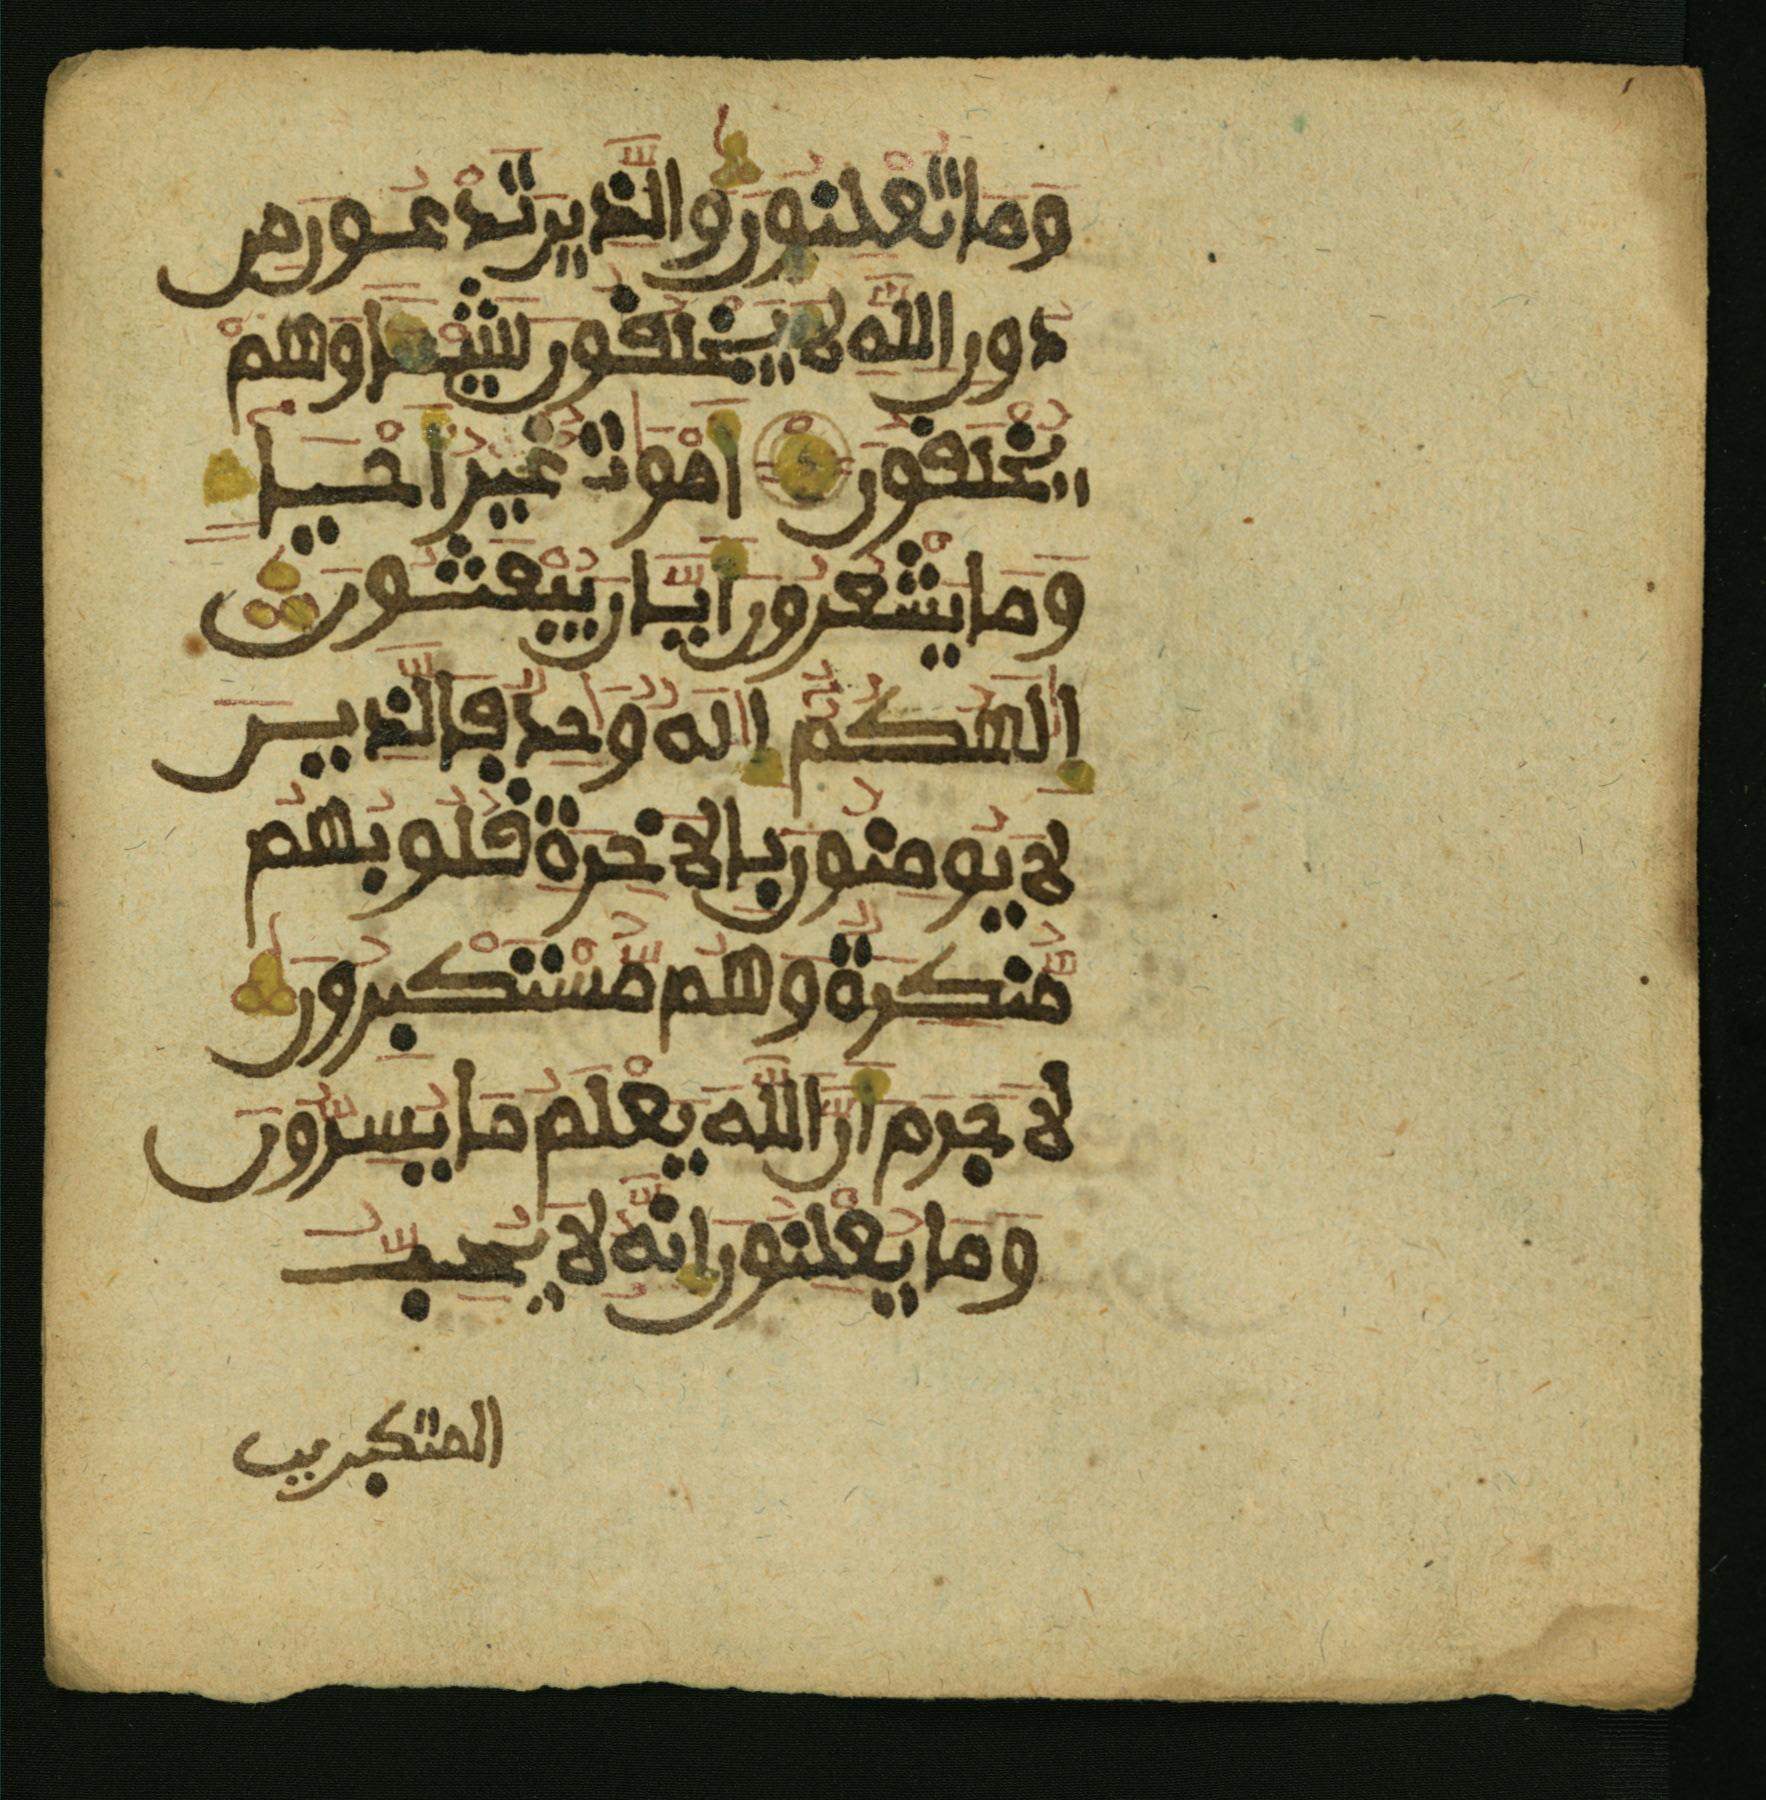 وَمَا تُعْلِنُونَ وَالَّذِينَ تَدْعُونَ مِن
دُونِ اللَّهِ لَا يَخْلُقُونَ شَيْئًا وَهُمْ
يُخْلَقُونَ أَمْوَاتٌ غَيْرُ أَحْيَاءٍ
وَمَا يَشْعُرُونَ أَيَّانَ يُبْعَثُونَ
إِلَٰهُكُمْ إِلَٰهٌ وَٰحِدٌ فَالَّذِينَ
لَا يُومِنُونَ بِالَاخِرَةِ قُلُوبُهُم
مُّنكِرَةٌ وَهُم مُّسْتَكْبِرُونَ
لَا جَرَمَ أَنَّ اللَّهَ يَعْلَمُ مَا يُسِرُّونَ
وَمَا يُعْلِنُونَ إِنَّهُ لَا يُحِبُّ
المتكبرين